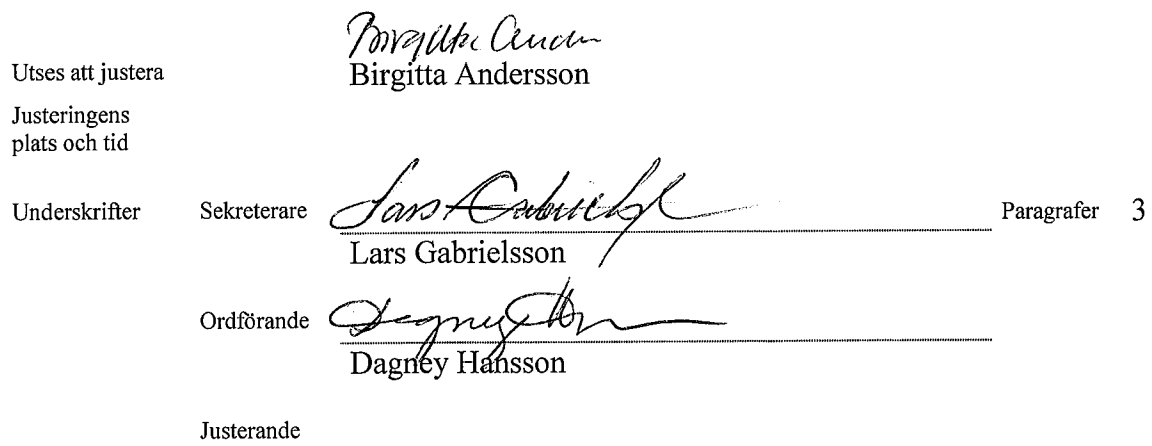 Birgitta Andersson
Utses att justera Birgitta Andersson
Justeringens
plats och tid
Underskrifter Sekreterare Lars Gabrielsson Paragrafer 3
Lars Gabrielsson
Ordförande Dagney Hansson
Dagney Hansson
Justerande